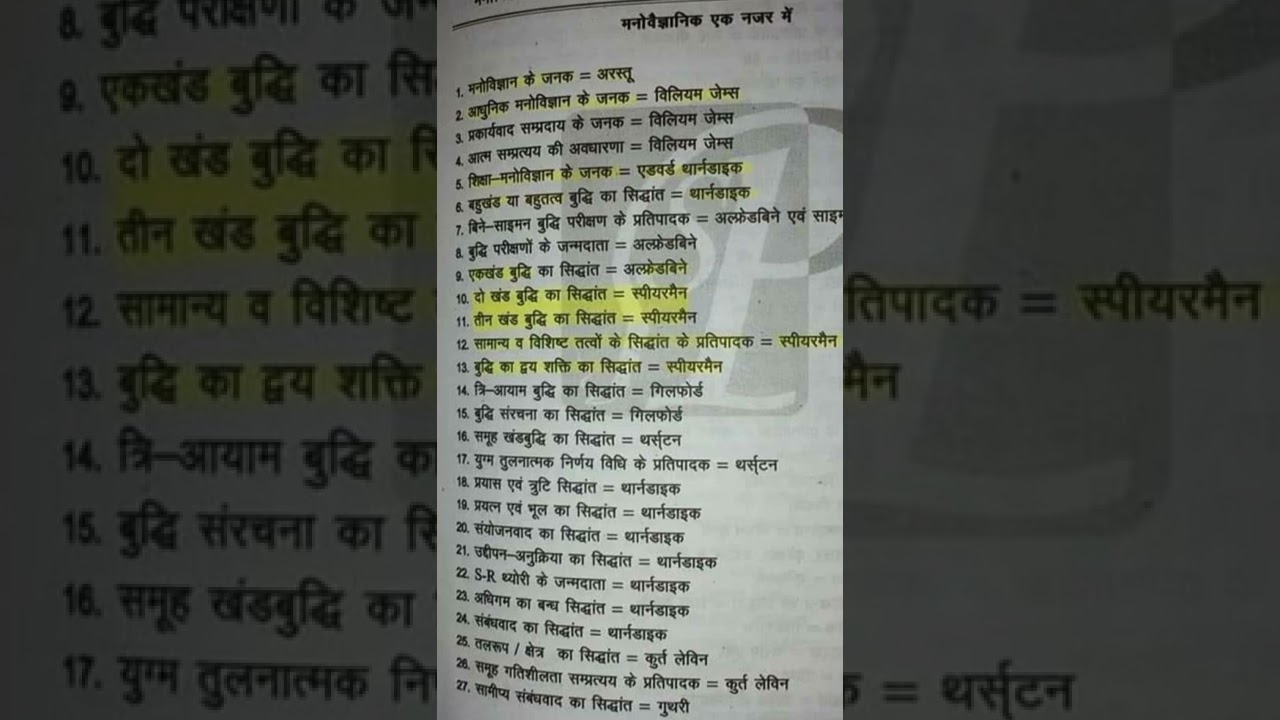 मनोवैज्ञानिक एक नजर में
1. मनोविज्ञान के जनक = अरस्तू
2. आधुनिक मनोविज्ञान के जनक = विलियम जेम्स
3. प्रकार्यवाद सम्प्रदाय के जनक = विलियम जेम्स
4. आत्म सम्प्रत्यय की अवधारणा = विलियम जेम्स
5. शिक्षा–मनोविज्ञान के जनक = एडवर्ड थार्नडाइक
6. बहुखंड या बहुतत्व बुद्धि का सिद्धांत = थार्नडाइक
7. बिने–साइमन बुद्धि परीक्षण के प्रतिपादक = अल्फ्रेडबिने एवं साइम
8. बुद्धि परीक्षणों के जन्मदाता = अल्फ्रेडबिने
9. एकखंड बुद्धि का सिद्धांत = अल्फ्रेडबिने
10. दो खंड बुद्धि का सिद्धांत = स्पीयरमैन
11. तीन खंड बुद्धि का सिद्धांत = स्पीयरमैन
12. सामान्य व विशिष्ट तत्वों के सिद्धांत के प्रतिपादक = स्पीयरमैन
13. बुद्धि का द्वय शक्ति का सिद्धांत = स्पीयरमैन
14. त्रि–आयाम बुद्धि का सिद्धांत = गिलफोर्ड
15. बुद्धि संरचना का सिद्धांत = गिलफोर्ड
16. समूह खंडबुद्धि का सिद्धांत = थर्स्टन
17. युग्म तुलनात्मक निर्णय विधि के प्रतिपादक = थर्स्टन
18. प्रयास एवं त्रुटि सिद्धांत = थार्नडाइक
19. प्रयत्न एवं भूल का सिद्धांत = थार्नडाइक
20. संयोजनवाद का सिद्धांत = थार्नडाइक
21. उद्दीपन–अनुक्रिया का सिद्धांत = थार्नडाइक
22. S-R थ्योरी के जन्मदाता = थार्नडाइक
23. अधिगम का बन्ध सिद्धांत = थार्नडाइक
24. संबंधवाद का सिद्धांत = थार्नडाइक
25. तलरूप / क्षेत्र का सिद्धांत = कुर्त लेविन
26. समूह गतिशीलता सम्प्रत्यय के प्रतिपादक = कुर्त लेविन
27. सामीप्य संबंधवाद का सिद्धांत = गुथरी